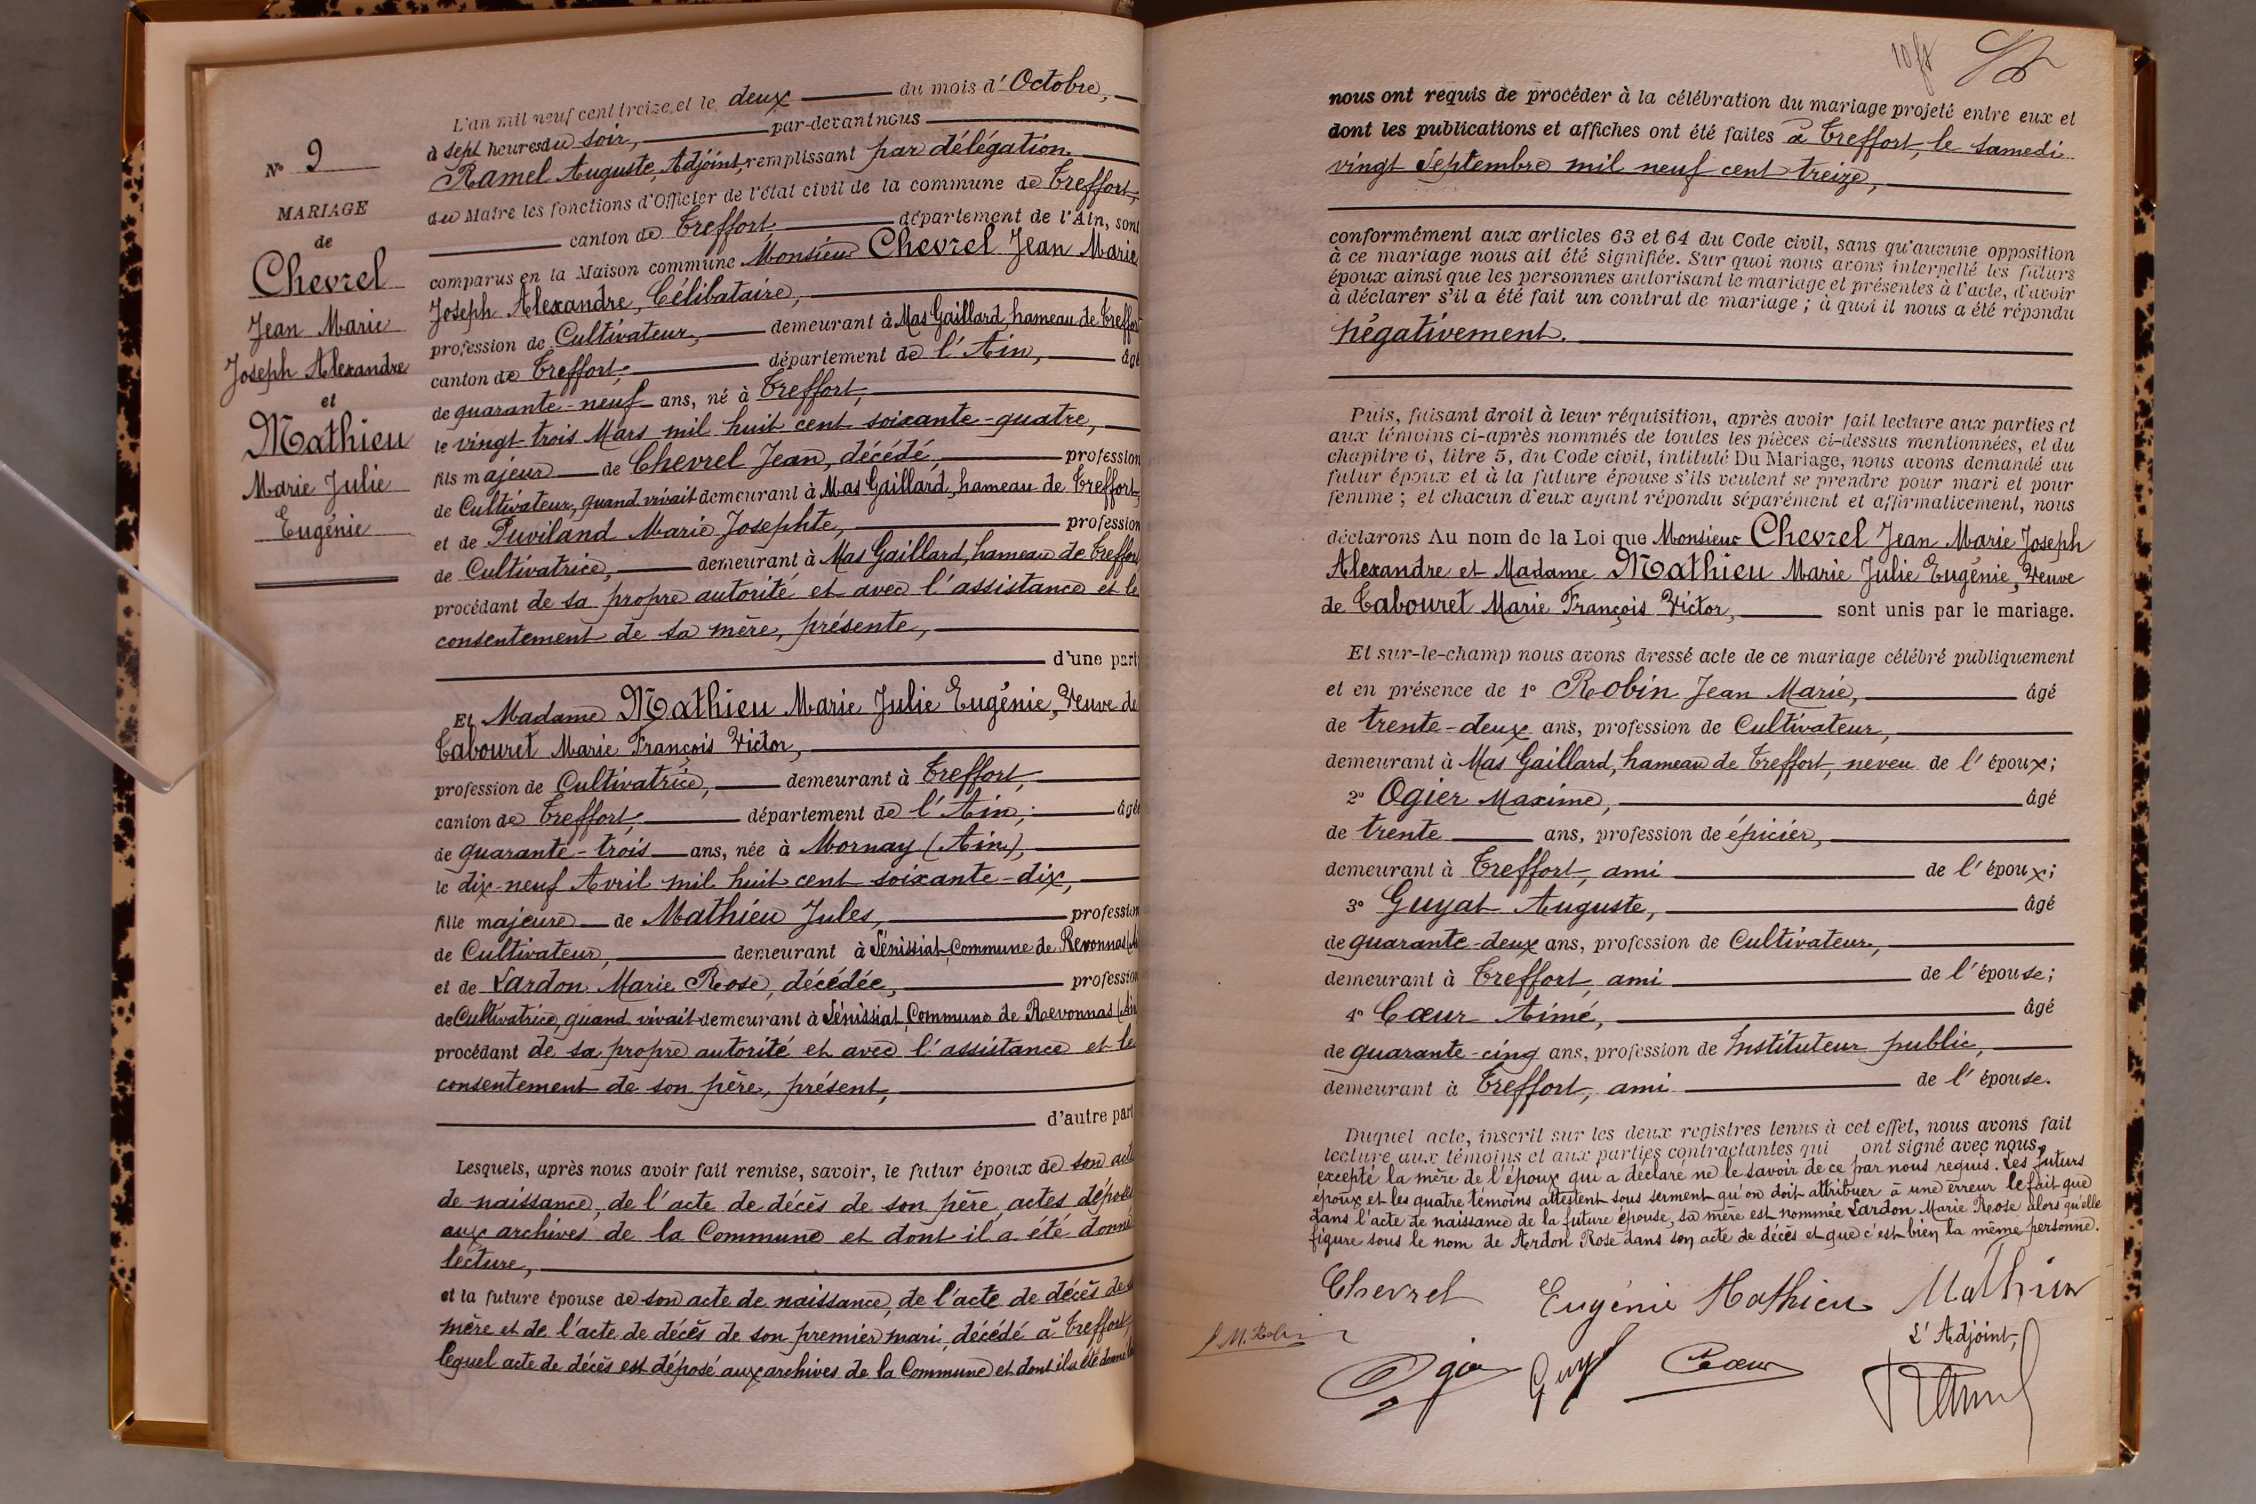 Nº 9
MARIAGE
de
Chevrel
Jean Marie
Joseph Alexandre
et
Mathieu
Marie Julie
Eugénie
L'an mil neuf cent treize, et le deux du mois d'Octobre,
à sept heures du soir, par-devant nous
Ramel Auguste, Adjoint, remplissant par délégation
du Maire les fonctions d'Officier de l'état civil de la commune de Treffort,
canton de Treffort, département de l'Ain, sont
comparus en la Maison commune Monsieur Chevrel Jean Marie
Joseph Alexandre, Célibataire,
profession de Cultivateur, demeurant à Mas Gaillard, hameau de Treffort
canton de Treffort, département de l'Ain, âgé
de quarante-neuf ans, né à Treffort,
le vingt-trois Mars mil huit cent soixante-quatre,
fils majeur de Chevrel Jean, décédé, profession
de Cultivateur, quand vivait demeurant à Mas Gaillard, hameau de Treffort,
et de Puviland Marie Josephte, profession
de Cultivatrice, demeurant à Mas Gaillard, hameau de Treffort
procédant de sa propre autorité et avec l'assistance et le
consentement de sa mère, présente,
d'une part
Et Madame Mathieu Marie Julie Eugénie, Veuve de
Tabouret Marie François Victor,
profession de Cultivatrice, demeurant à Treffort,
canton de Treffort, département de l'Ain, âgée
de quarante-trois ans, née à Mornay (Ain),
le dix-neuf Avril mil huit cent soixante-dix,
fille majeure de Mathieu Jules, profession
de Cultivateur, demeurant à Sénissiat, Commune de Revonnas (A
et de Lardon Marie Rose, décédée, profession
de Cultivatrice, quand vivait demeurant à Sénissiat, Commune de Revonnas (Ain
procédant de sa propre autorité et avec l'assistance et le
consentement de son père, présent,
d'autre part
Lesquels, après nous avoir fait remise, savoir, le futur époux de son acte
de naissance, de l'acte de décès de son père, actes déposés
aux archives de la Commune et dont il a été donné
lecture,
et la future épouse de son acte de naissance, de l'acte de décès de sa
mère et de l'acte de décès de son premier mari, décédé à Treffort,
lequel acte de décès est déposé aux archives de la Commune et dont il a été donné
nous ont requis de procéder à la célébration du mariage projeté entre eux et
dont les publications et affiches ont été faites à Treffort, le samedi
vingt Septembre mil neuf cent treize,
conformément aux articles 63 et 64 du Code civil, sans qu'aucune opposition
à ce mariage nous ait été signifiée. Sur quoi nous avons interpellé les futurs
époux ainsi que les personnes autorisant le mariage et présentes à l'acte, d'avoir
à déclarer s'il a été fait un contrat de mariage ; à quoi il nous a été répondu
négativement.
Puis, faisant droit à leur réquisition, après avoir fait lecture aux parties et
aux témoins ci-après nommés de toutes les pièces ci-dessus mentionnées, et du
chapitre 6, titre 5, du Code civil, intitulé Du Mariage, nous avons demandé au
futur époux et à la future épouse s'ils veulent se prendre pour mari et pour
femme ; et chacun d'eux ayant répondu séparément et affirmativement, nous
déclarons Au nom de la Loi que Monsieur Chevrel Jean Marie Joseph
Alexandre et Madame Mathieu Marie Julie Eugénie, Veuve
de Tabouret Marie François Victor, sont unis par le mariage.
Et sur-le-champ nous avons dressé acte de ce mariage célébré publiquement
et en présence de 1º Robin Jean Marie, âgé
de trente-deux ans, profession de Cultivateur,
demeurant à Mas Gaillard, hameau de Treffort, neveu de l'époux;
2º Ogier Maxime, âgé
de trente ans, profession de épicier,
demeurant à Treffort, ami de l'époux;
3º Guyat Auguste, âgé
de quarante-deux ans, profession de Cultivateur,
demeurant à Treffort, ami de l'épouse;
4º Cœur Aimé, âgé
de quarante-cinq ans, profession de Instituteur public,
demeurant à Treffort, ami de l'épouse.
Duquel acte, inscrit sur les deux registres tenus à cet effet, nous avons fait
lecture aux témoins et aux parties contractantes qui ont signé avec nous,
excepté la mère de l'époux qui a déclaré ne le savoir de ce par nous requis. Les futurs
époux et les quatre témoins attestent sous serment qu'on doit attribuer à une erreur le fait que
dans l'acte de naissance de la future épouse, sa mère est nommée Lardon Marie Rose alors qu'elle
figure sous le nom de Ardon Rose dans son acte de décès et que c'est bien la même personne.
Chevrel Eugénie Mathieu Mathieu
J M. Robin
L'Adjoint,
Ogier Guyat Cœur Ramel